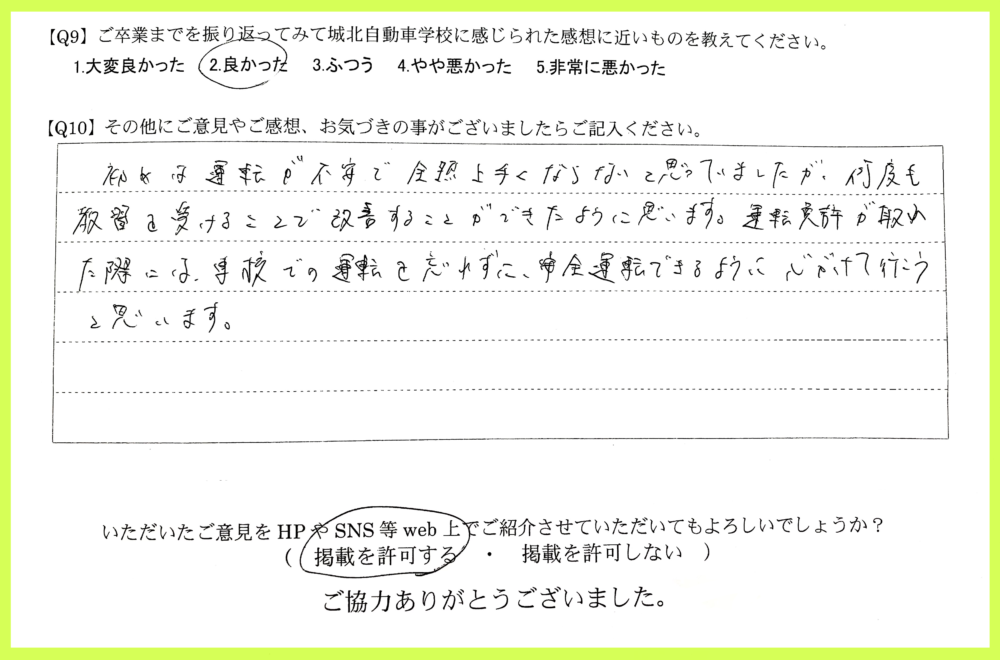 【Q9】ご卒業までを振り返ってみて城北自動車学校に感じられた感想に近いものを教えてください。
1.大変良かった 2.良かった 3.ふつう 4.やや悪かった 5.非常に悪かった
【Q10】その他にご意見やご感想、お気づきの事がございましたらご記入ください。
初めは運転が不安で全然上手くならないと思っていましたが、何度も
教習を受けることで改善することができたように思います。運転免許が取れ
た際には、学校での運転を忘れずに、安全運転できるように心がけて行こう
と思います。
いただいたご意見をHPやSNS等web上でご紹介させていただいてもよろしいでしょうか？
（ 掲載を許可する ・ 掲載を許可しない ）
ご協力ありがとうございました。